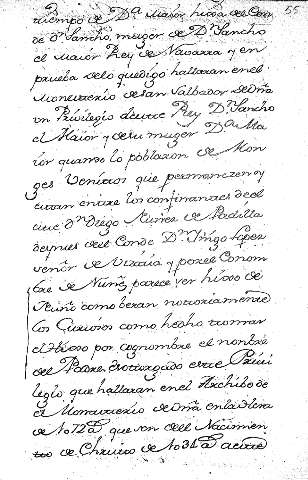 55
tiempo de Dª Maior hixa del Con
de dⁿ Sancho, muger de Dⁿ Sancho
el Maior Rey de Navarra y en
prueba de lo que digo hallaran en el
Monesterio de san Salbador de Oña
vn Priuilegio de este Rey Dⁿ Sancho
el Maior y de su muger Dª Ma
ior quando lo poblaron de Mon
ges Venitos que permanezen oy
estan entre los confirmantes de el
dⁿ Diego Nuñez de Padilla
despues del Conde Dⁿ Iñigo Lopez
venor de Vizcaia y por el Conom
bre de Nuñez parece ser hixo de
Nuño como beran notoriamente
los Curiosos como hecho tromar
el Hixo por cognombre el nombre
del Padre, Esotorgado este Priui
legio que hallaran en el Archibo de
el Monesterio de Oña en la Hera
de No 72ª que son del Nacimien
to de Christo de No 34ª